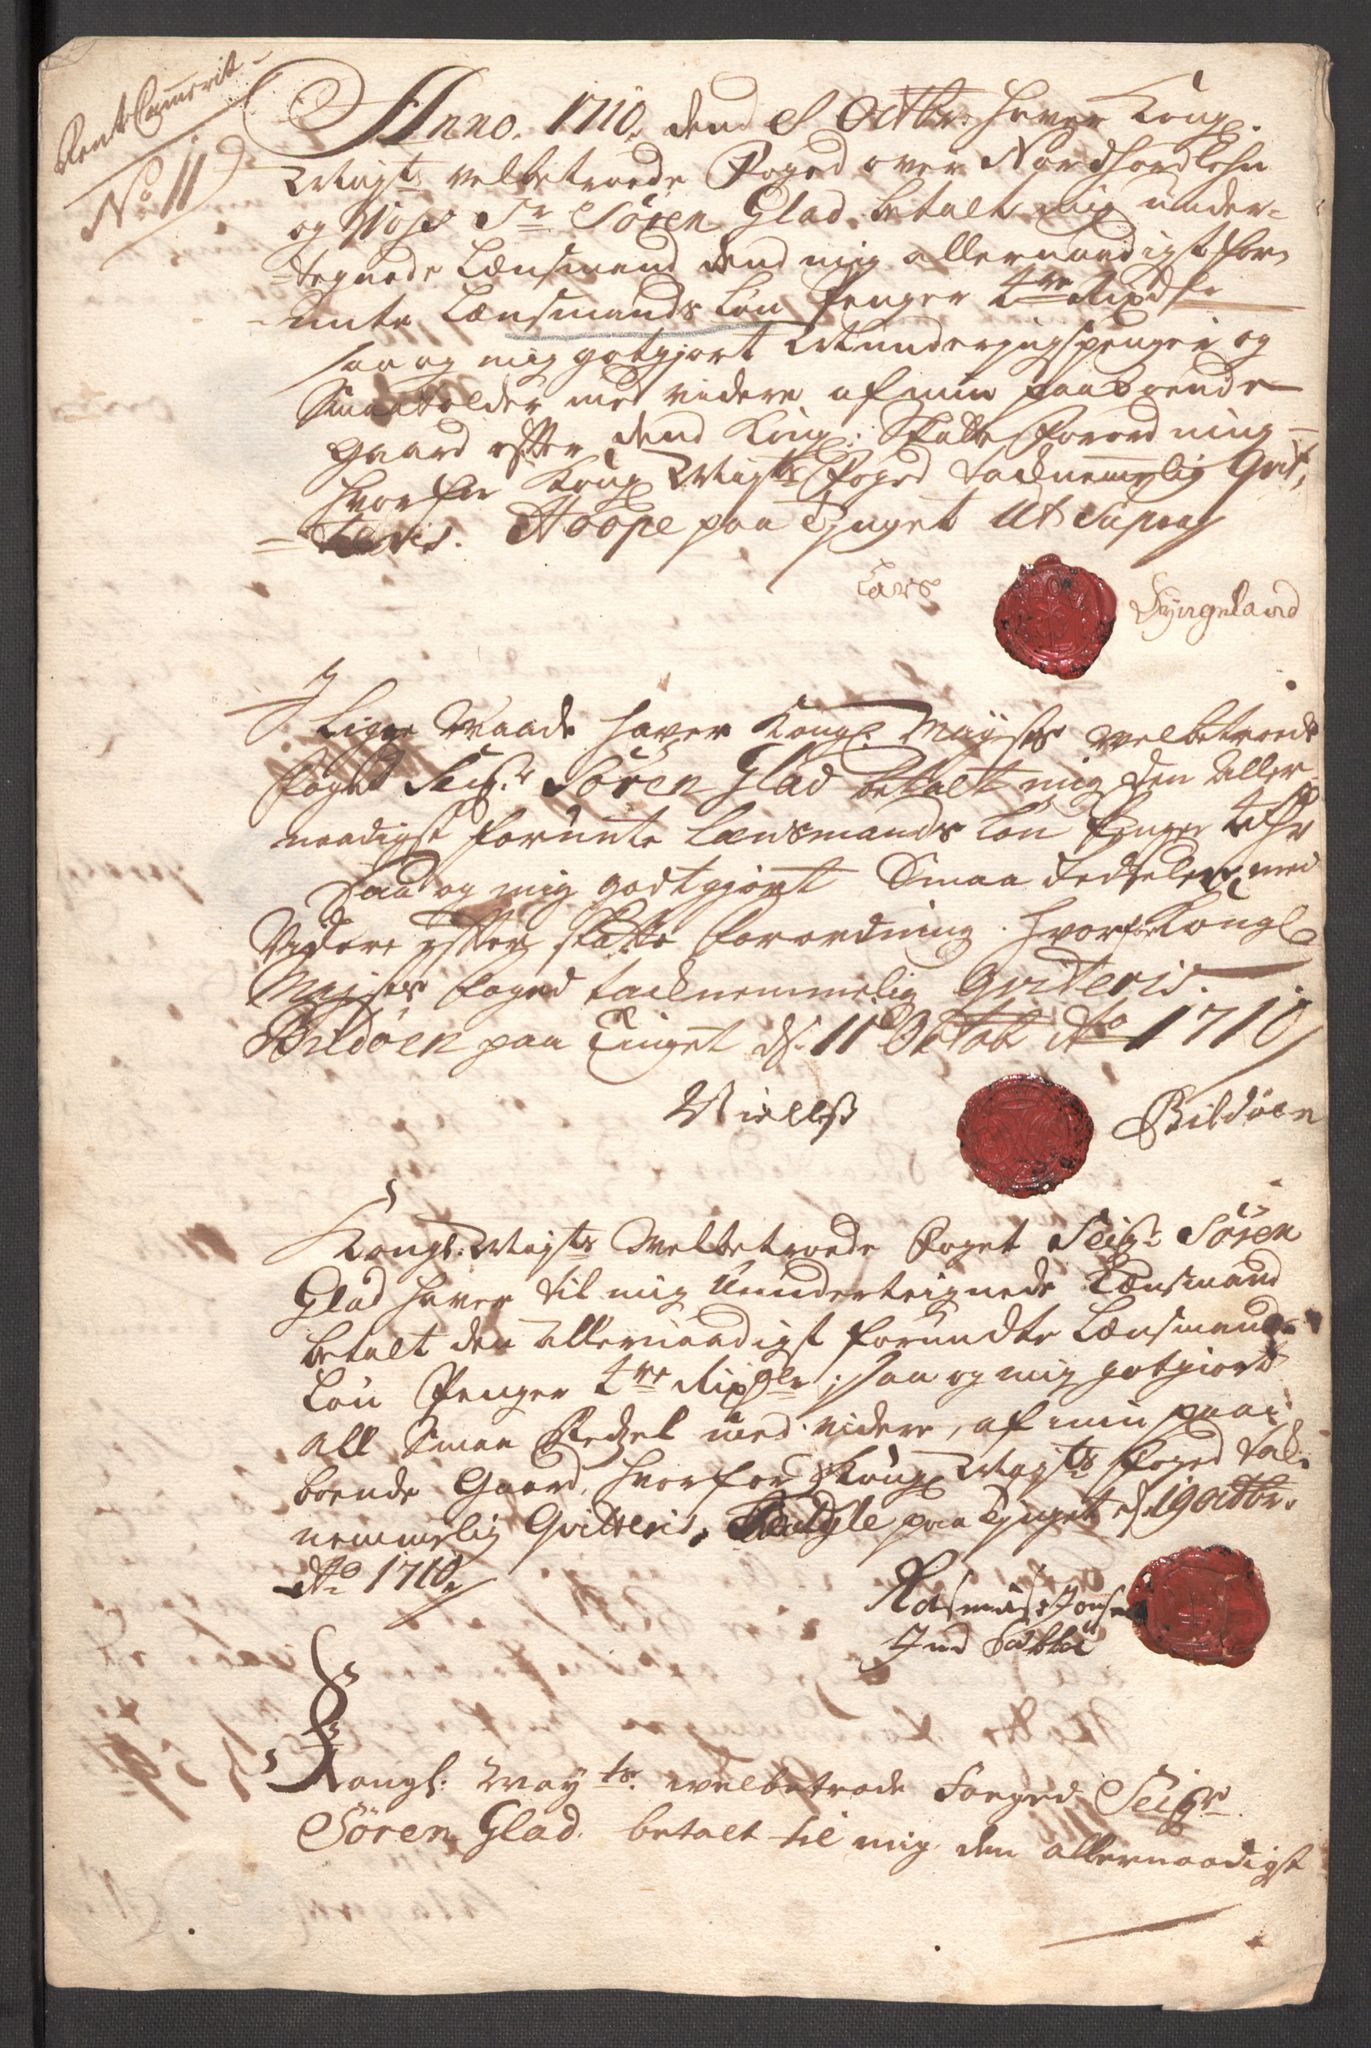 RenteCammerit
No 11
Anno. 1710. dend 8 Octbr: haver Kong:
Mayts velbetroede Foged over Nordhordlehn
og Voss Sr Sören Glad betalt mig under-
tegnede Lænsmand dend mig allernaadigst for-
unte Lænsmands Lön Penger 4re Rixdlr
saa og mig gotgjort Munderingspenger og
Smaatolder med videre af min paaboende
gaard efter dend Kong: Skatte Forordning
hvorfor Kong Mayts Foged tacknemmelig Qvit-
teris. Hoope paa Tinget Ut Supra
Lars Tyngeland
I Lige Maade haver Kongl: Mayts velbetroede
foged Seigr Sören Glad betalt mig den Aller
naadigst forunte Lænsmands Lön Penger 4 Rdr
Saa og mig godtgjort Smaa Sedseler med
Videre Efter skatte forordning. hvorfor Kongl
Mayts foged tacknemmelig Qviteris.
Bildöen paa Tinget ds: 11 Oktob Ao 1710
Nielss Bildöen
Kongl: Mayts Welbetroede Foget Seigr Sören
Glad haver til mig Underteignede Lænsmand
betalt den allernaadigst forundte Lænsmands
Lön Penger 4re Rixdlr, saa og mig gotgiort
all Smaa Redzel med videre, af min paa-
boende Gaard, hvorfor Kong Mayts Foged tak-
nemmelig Qvitteris. paa Tinget d 19 Octbr.
Ao 1710
Rasmus Jonsen
Kongl: Mayts: welbetrode Foeged Seigr
Sören Glad. betalt til mig den allernaadigst